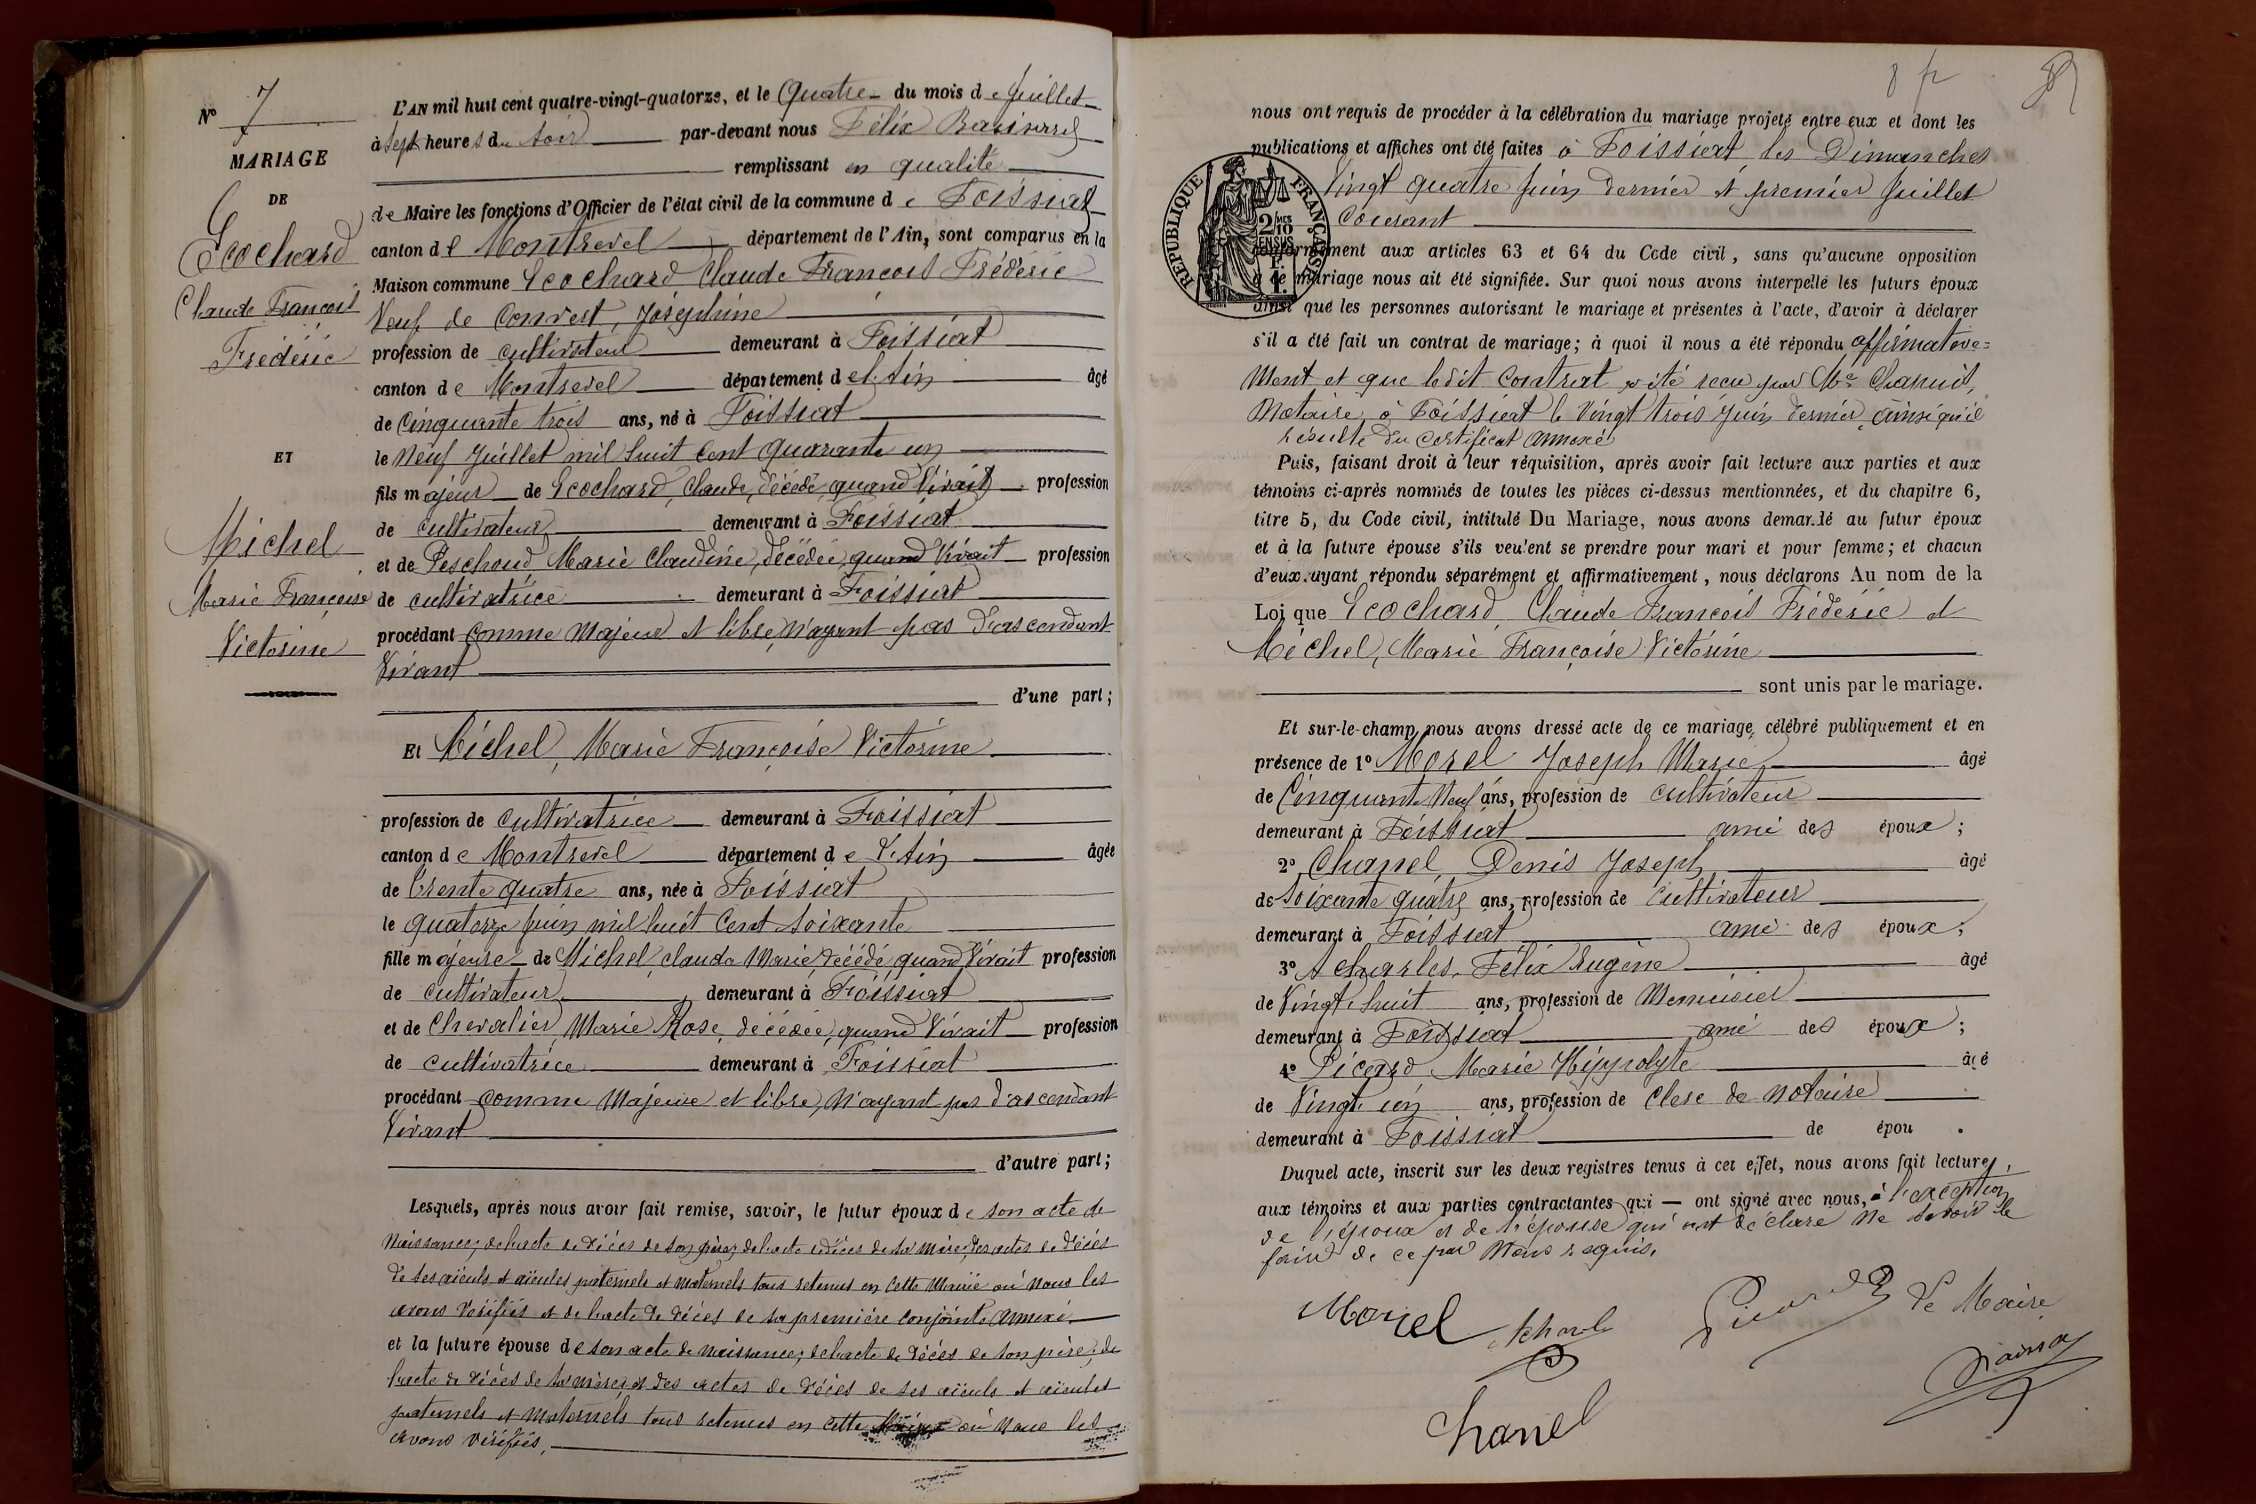 Nº 7
MARIAGE
DE
Ecochard
Claude François
Frédéric
ET
Michel
Marie Françoise
Victorine
L'AN mil huit cent quatre-vingt-quatorze, et le Quatre du mois de Juillet
à sept heures du soir par-devant nous Félix
remplissant en qualité
de Maire les fonctions d'Officier de l'état civil de la commune de Foissiat
canton de Montrevel département de l'Ain, sont comparus en la
Maison commune Ecochard Claude François Frédéric
Veuf de Convert, Joséphine
profession de cultivateur demeurant à Foissiat
canton de Montrevel département de l'Ain âgé
de Cinquante trois ans, né à Foissiat
le Neuf Juillet mil huit cent quarante un
fils majeur de Ecochard, Claude, décédé, quand Vivait profession
de cultivateur demeurant à Foissiat
et de Peschoud Marie Claudine, décédée, quand Vivait profession
de cultivatrice demeurant à Foissiat
procédant comme Majeur et libre, n'ayant pas d'ascendant
Vivant
d'une part;
Et Michel, Marie Françoise Victorine
profession de cultivatrice demeurant à Foissiat
canton de Montrevel département de l'Ain âgée
de trente quatre ans, née à Foissiat
le quatorze juin mil huit Cent soixante
fille majeure de Michel, Claude Marie, décédé, quand Vivait profession
de cultivateur demeurant à Foissiat
et de Chevalier, Marie Rose, décédée, quand Vivait profession
de cultivatrice demeurant à Foissiat
procédant comme Majeure et libre, N'ayant pas d'ascendant
Vivant
d'autre part;
Lesquels, après nous avoir fait remise, savoir, le futur époux de son acte de
Naissance, de l'acte de décès de son père, de l'acte de décès de sa mère, des actes de décès
de ses aïeuls et aïeules paternels et maternels tous retenus en cette Mairie où nous les
avons vérifiés et de l'acte de décès de sa première conjointe annexé
et la future épouse de son acte de naissance, de l'acte de décès de son père, de
l'acte de décès de sa mère, et des actes de décès de ses aïeuls et aïeules
paternels et maternels tous retenus en cette Mairie où nous les
avons vérifiés,
8 fr
nous ont requis de procéder à la célébration du mariage projeté entre eux et dont les
publications et affiches ont été faites à Foissiat les Dimanches
Vingt quatre Juin dernier et premier Juillet
Courant
RÉPUBLIQUE FRANÇAISE
2/10
EN SUS
1 F.
conformément aux articles 63 et 64 du Code civil, sans qu'aucune opposition
à ce mariage nous ait été signifiée. Sur quoi nous avons interpellé les futurs époux
ainsi que les personnes autorisant le mariage et présentes à l'acte, d'avoir à déclarer
s'il a été fait un contrat de mariage; à quoi il nous a été répondu affirmative=
ment et que ledit Contrat a été reçu par Me Chanuit,
Notaire à Foissiat le Vingt trois Juin dernier, ainsi qu'il
résulte du certificat annexé
Puis, faisant droit à leur réquisition, après avoir fait lecture aux parties et aux
témoins ci-après nommés de toutes les pièces ci-dessus mentionnées, et du chapitre 6,
titre 5, du Code civil, intitulé Du Mariage, nous avons demandé au futur époux
et à la future épouse s'ils veulent se prendre pour mari et pour femme; et chacun
d'eux ayant répondu séparément et affirmativement, nous déclarons Au nom de la
Loi que Ecochard, Claude François Frédéric et
Michel, Marie Françoise Victorine
sont unis par le mariage.
Et sur-le-champ nous avons dressé acte de ce mariage, célébré publiquement et en
présence de 1º Morel Joseph Marie âgé
de Cinquante Neuf ans, profession de cultivateur
demeurant à Foissiat ami des époux;
2º Chanel, Denis Joseph âgé
de soixante quatre ans, profession de cultivateur
demeurant à Foissiat ami des époux;
3º Acharles, Félix Eugène âgé
de Vingt huit ans, profession de Menuisier
demeurant à Foissiat ami des époux;
4º Picard Marie Hippolyte âgé
de Vingt un ans, profession de clerc de notaire
demeurant à Foissiat de épou .
Duquel acte, inscrit sur les deux registres tenus à cet effet, nous avons fait lecture,
aux témoins et aux parties contractantes qui — ont signé avec nous, à l'exception
de l'époux et de l'épouse qui ont déclaré ne savoir le
faire de ce par Nous requis.
Morel Acharles Picard Le Maire
Chanel